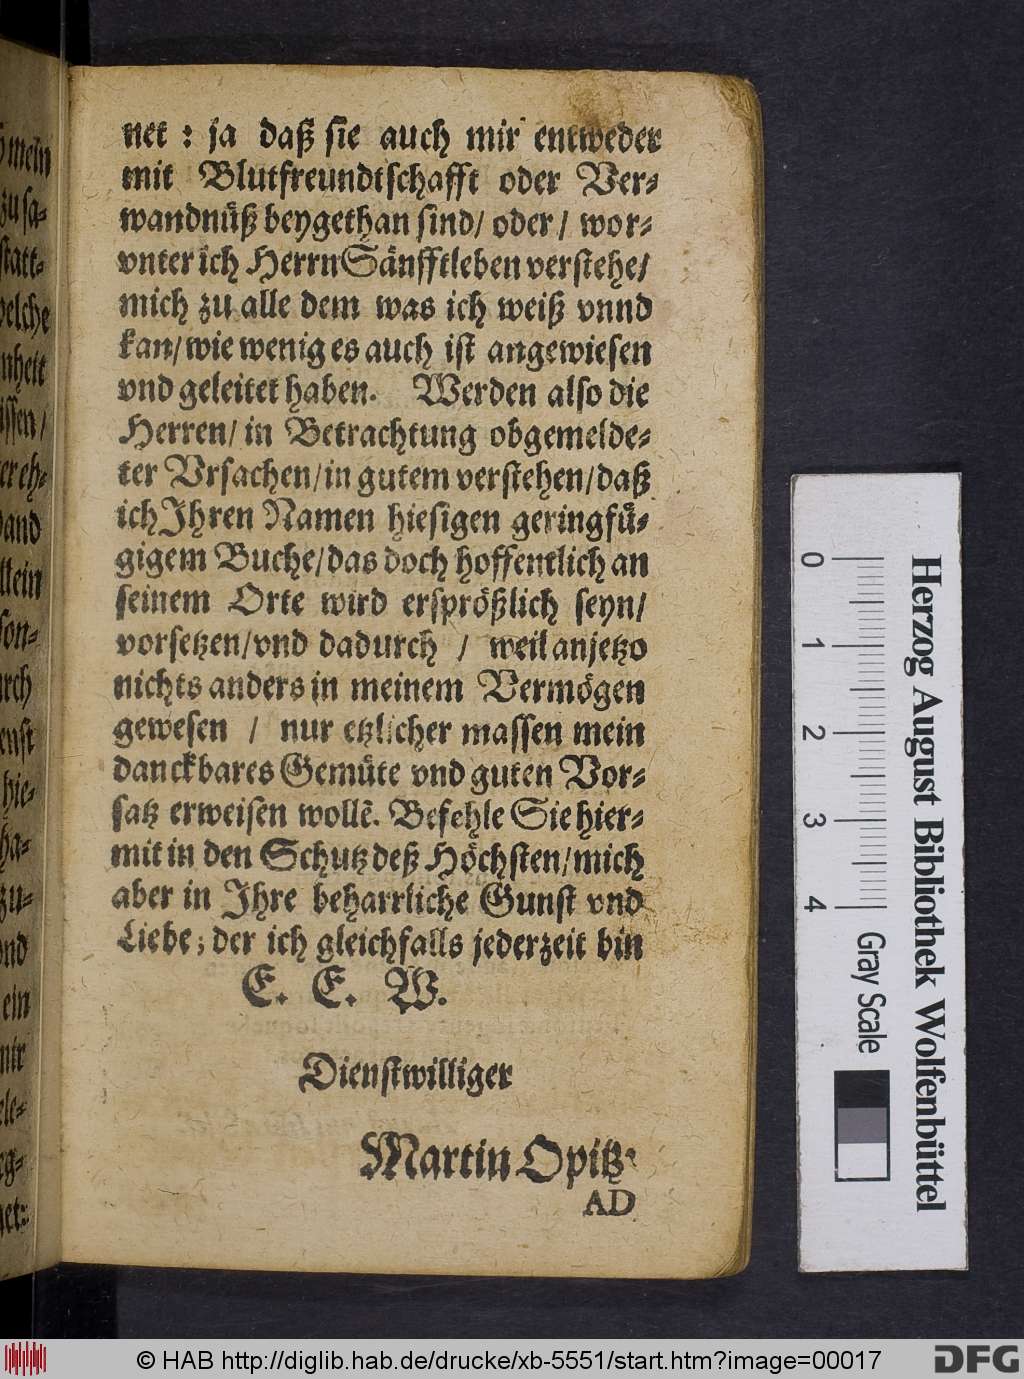 net : ja daß sie auch mir entweder
mit Blutfreundtschafft oder Ver-
wandnuͤß beygethan sind/ oder/ wor-
vnter ich Herrn Saͤnfftleben verstehe/
mich zu alle dem was ich weiß vnnd
kan/ wie wenig es auch ist angewiesen
vnd geleitet haben. Werden also die
Herren/ in Betrachtung obgemelde-
ter Vrsachen/ in gutem verstehen/ daß
ich Jhren Namen hiesigen geringfuͤ-
gigem Buche/ das doch hoffentlich an
seinem Orte wird ersproͤßlich seyn/
vorsetzen/ vnd dadurch / weil anjetzo
nichts anders in meinem Vermoͤgen
gewesen / nur etzlicher massen mein
danckbares Gemuͤte vnd guten Vor-
satz erweisen wollē. Befehle Sie hier-
mit in den Schutz deß Hoͤchsten/ mich
aber in Jhre beharrliche Gunst vnd
Liebe; der ich gleichfalls jederzeit bin
E. E. W.
Dienstwilliger
Martin Opitz.
AD
mein
zu sa-
statt-
welche
nheit
issen/
ereh-
band
llein
son-
urch
enst
hie-
ha-
zu-
ond
ein
mir
ele-
eg-
net:
0 1 2 3 4
Gray Scale
Herzog August Bibliothek Wolfenbüttel
© HAB http://diglib.hab.de/drucke/xb-5551/start.htm?image=00017
DFG